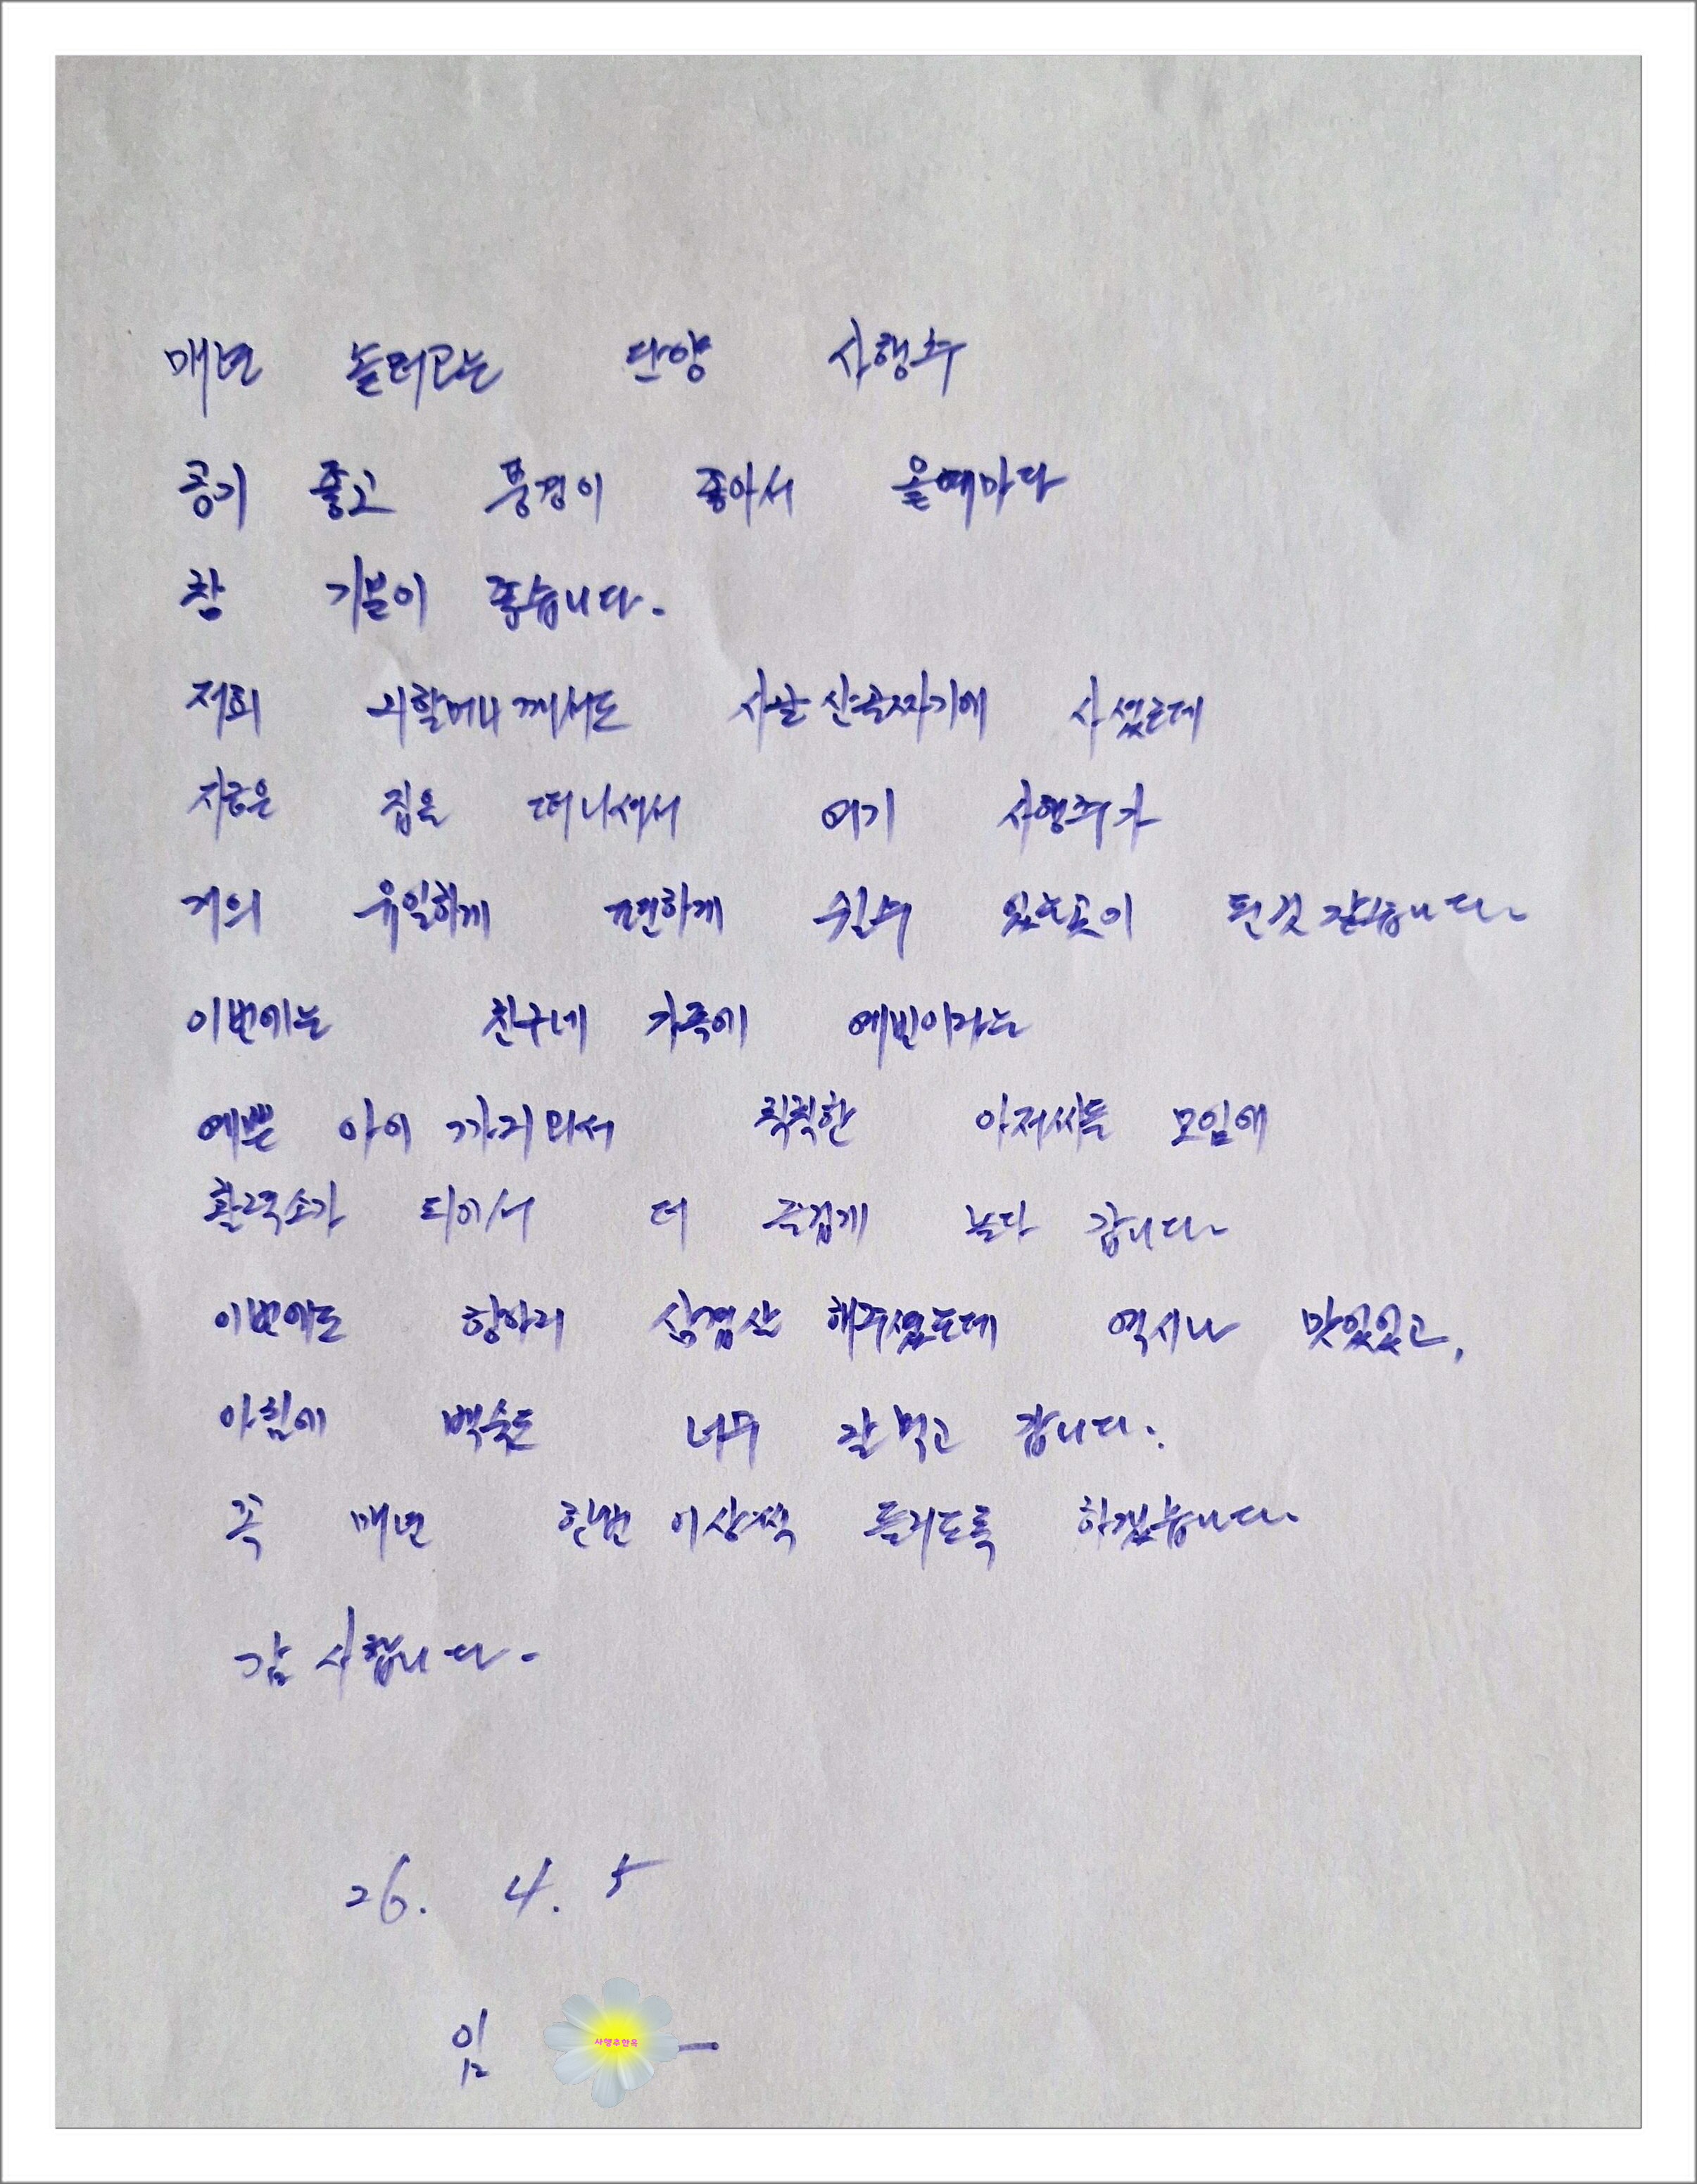 매년 놀러오는 단양 사행추
공기 좋고 풍경이 좋아서 올때마다
참 기분이 좋습니다.
저희 외할머니께서도 시골 산골짜기에 사셨는데
지금은 집을 떠나셔서 여기 사행추가
거의 유일하게 편하게 쉴수 있는곳이 된것 같습니다.
이번에는 친구네 가족에 예빈이라는
예쁜 아이까지 와서 칙칙한 아저씨들 모임에
활력소가 되어서 더 즐겁게 놀다 갑니다.
이번에도 항아리 삼겹살 해주셨는데 역시나 맛있었고,
아침에 백숙도 너무 잘 먹고 갑니다.
꼭 매년 한번 이상씩 들리도록 하겠습니다.
감사합니다.
26. 4. 5
임
사행추한옥